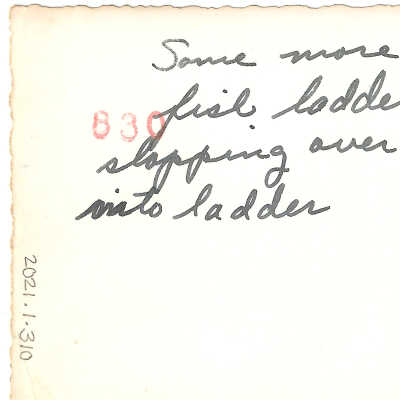 Some more
fish ladde
830
slopping over
into ladder
2021.1.310